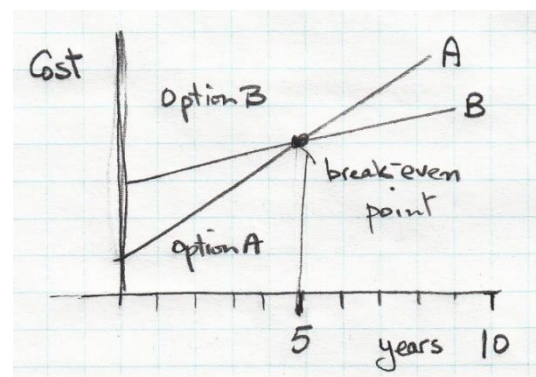 Cost
A
Option B
B
break-even
point
Option A
5
years
10